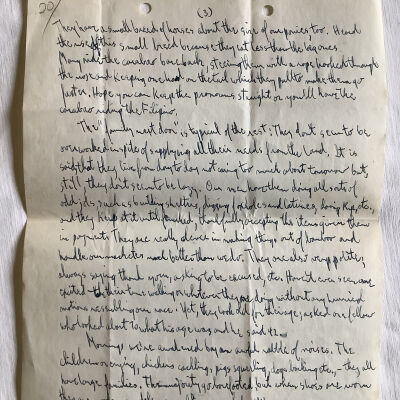 20/
(3)
They have a small breed of horses about the size of our ponies, too. Heard
they use this small breed because they eat less than the big ones.
Many ride the carabao bareback, steering them with a rope hooked through
the nose and keeping one hand on the tail which they pull to make them go
faster. Hope you can keep the pronouns straight or you'll have the
carabao riding the Filipino.
The "family next door" is typical of the rest. They don't seem to be
overworked in spite of supplying all their needs from the land. It is
said that they live from day to day not caring too much about tomorrow but
still they don't seem to be lazy. Our men have them doing all sorts of
odd jobs such as building shelters, digging foxholes and latrines, doing KP, etc.,
and they keep at it until finished, thankfully accepting the items given them
in payment. They are really clever in making things out of bamboo and
handle our machetes much better than we do. They are also very polite,
always saying thank you, asking to be excused, etc. Haven't even seen one
excited - they're always walking or whatever they are doing without any hurried
motions resembling our race. Yet, they look old for their age, asked one fellow
who looked about 70 what his age was and he said 42.
Mornings we're awakened by an awful rattle of noises. The
children crying, chickens cackling, pigs squealing, dogs barking etc., - they all
have large families. The majority go barefooted, but when shoes are worn